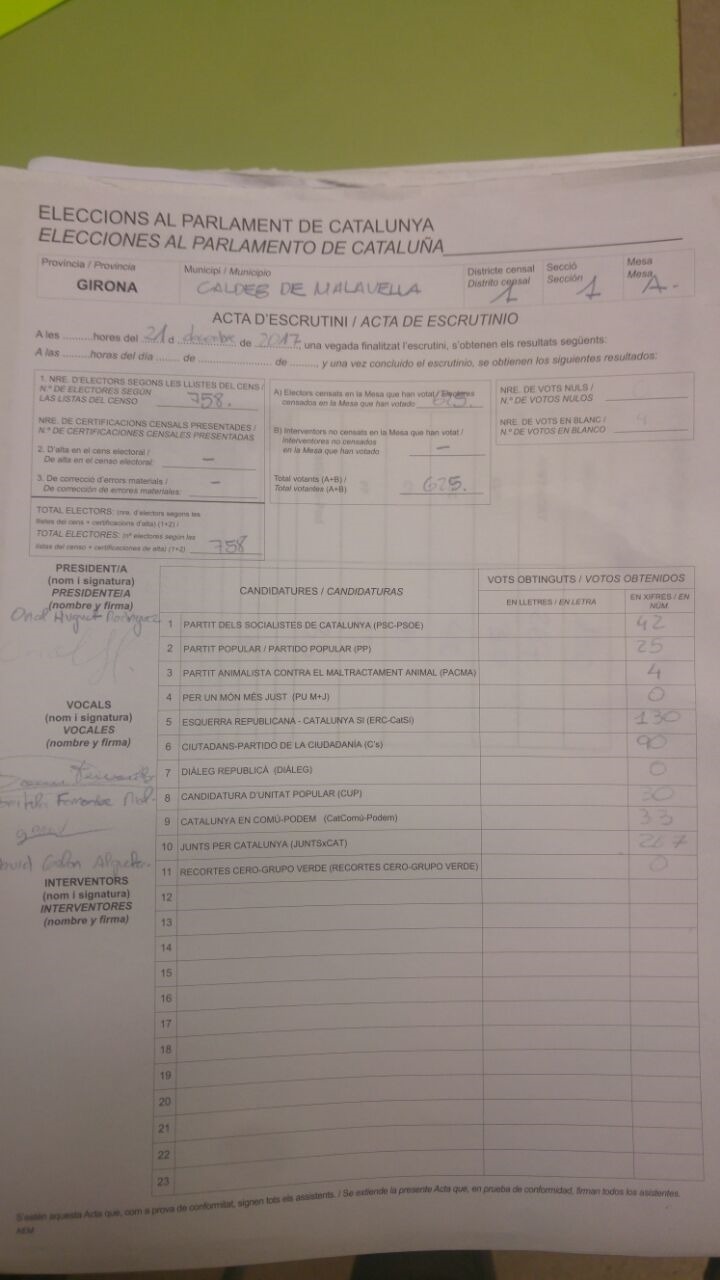 ELECCIONS AL PARLAMENT DE CATALUNYA
ELECCIONES AL PARLAMENTO DE CATALUÑA
Província / Provincia
GIRONA
Municipi / Municipio
CALDES DE MALAVELLA
Districte censal
Distrito censal
1
Secció
Sección
1
Mesa
Mesa
A.
ACTA D'ESCRUTINI / ACTA DE ESCRUTINIO
A les ..........hores del 21 d desembre de 2017, una vegada finalitzat l'escrutini, s'obtenen els resultats següents:
A las ..........horas del día ........ de ........................ de .........., y una vez concluido el escrutinio, se obtienen los siguientes resultados:
1. NRE. D'ELECTORS SEGONS LES LLISTES DEL CENS /
N.º DE ELECTORES SEGÚN
LAS LISTAS DEL CENSO 758.
NRE. DE CERTIFICACIONS CENSALS PRESENTADES /
N.º DE CERTIFICACIONES CENSALES PRESENTADAS
2. D'alta en el cens electoral /
De alta en el censo electoral: –
3. De correcció d'errors materials /
De corrección de errores materiales: –
TOTAL ELECTORS: (nre. d'electors segons les
llistes del cens + certificacions d'alta) (1+2) /
TOTAL ELECTORES: (nº electores según las
listas del censo + certificaciones de alta) (1+2) 758
A) Electors censats en la Mesa que han votat / Electores
censados en la Mesa que han votado 625.
B) Interventors no censats en la Mesa que han votat /
Interventores no censados
en la Mesa que han votado –
Total votants (A+B) /
Total votantes (A+B) 625.
NRE. DE VOTS NULS /
N.º DE VOTOS NULOS
NRE. DE VOTS EN BLANC /
N.º DE VOTOS EN BLANCO 4
PRESIDENT/A
(nom i signatura)
PRESIDENTE/A
(nombre y firma)
Oriol Huguet Rodríguez
VOCALS
(nom i signatura)
VOCALES
(nombre y firma)
INTERVENTORS
(nom i signatura)
INTERVENTORES
(nombre y firma)
CANDIDATURES / CANDIDATURAS
VOTS OBTINGUTS / VOTOS OBTENIDOS
EN LLETRES / EN LETRA
EN XIFRES / EN NÚM.
1 PARTIT DELS SOCIALISTES DE CATALUNYA (PSC-PSOE) 42
2 PARTIT POPULAR / PARTIDO POPULAR (PP) 25
3 PARTIT ANIMALISTA CONTRA EL MALTRACTAMENT ANIMAL (PACMA) 4
4 PER UN MÓN MÉS JUST (PU M+J) 0
5 ESQUERRA REPUBLICANA - CATALUNYA SÍ (ERC-CatSí) 130
6 CIUTADANS-PARTIDO DE LA CIUDADANÍA (C's) 90
7 DIÀLEG REPUBLICÀ (DIÀLEG) 0
8 CANDIDATURA D'UNITAT POPULAR (CUP) 30
9 CATALUNYA EN COMÚ-PODEM (CatComú-Podem) 33
10 JUNTS PER CATALUNYA (JUNTSxCAT) 267
11 RECORTES CERO-GRUPO VERDE (RECORTES CERO-GRUPO VERDE) 0
12
13
14
15
16
17
18
19
20
21
22
23
S'estén aquesta Acta que, com a prova de conformitat, signen tots els assistents. / Se extiende la presente Acta que, en prueba de conformidad, firman todos los asistentes.